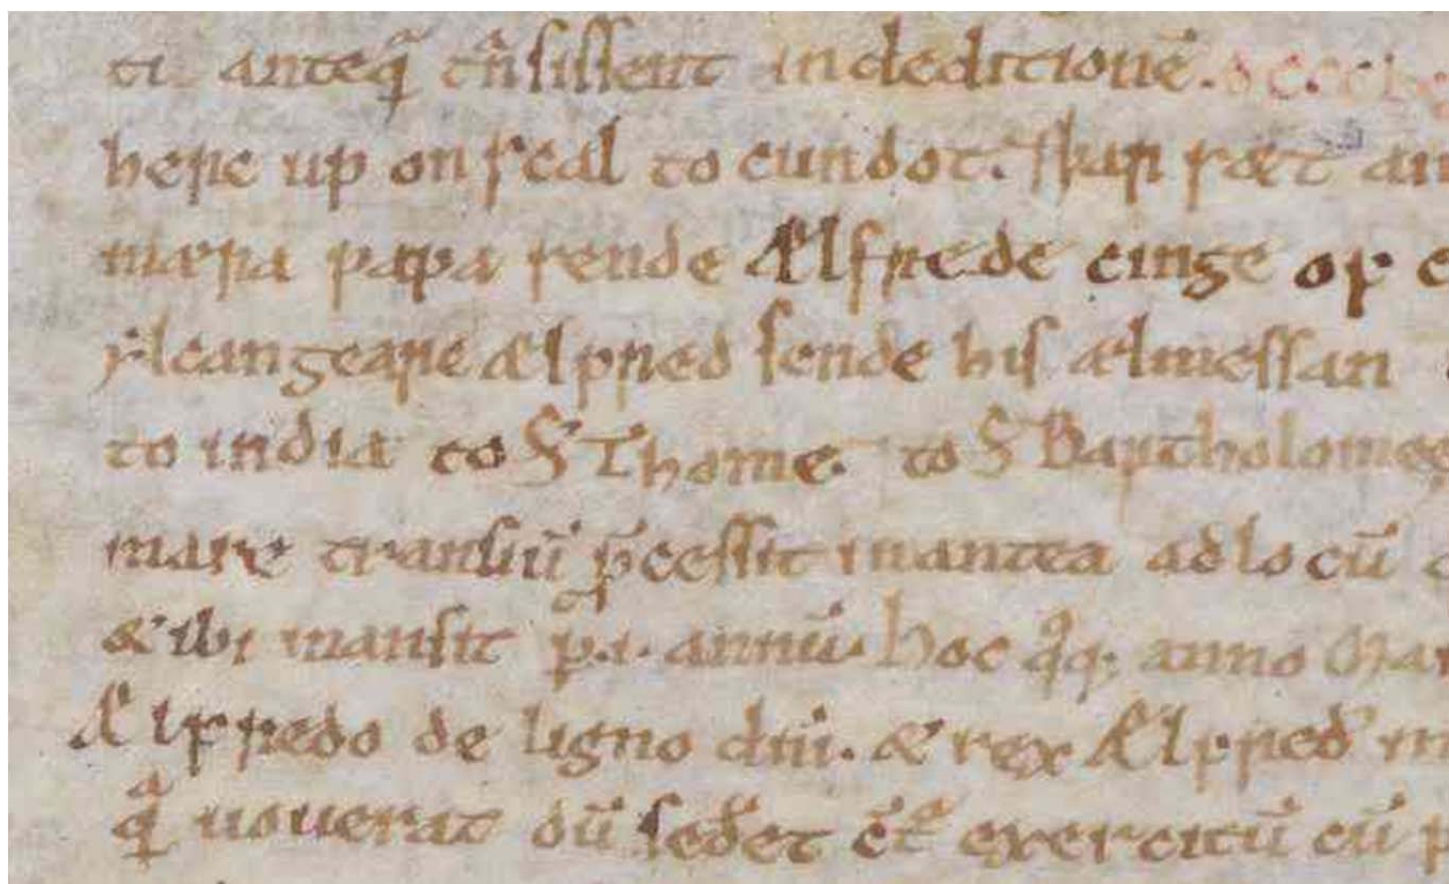 ti anteq̄ trāsissent in deditionē. dccc
here up on scal to cundoþ. ⁊ þær sæt an
mæra papa sende Ælfrede cinge of
ylcan geare ælfred sende his ælmessan
to india to S̄ Thome. to S̄ Bartholomeę
mare transiū p̄cessit in antea ad locū
& ibi mansit p̄ .i. annū. hoc q̊q; anno Mar
Ælfredo de ligno dn̄i. & rex Ælfred m
q̄ uouerat dū sedet cͣt exercitū cū